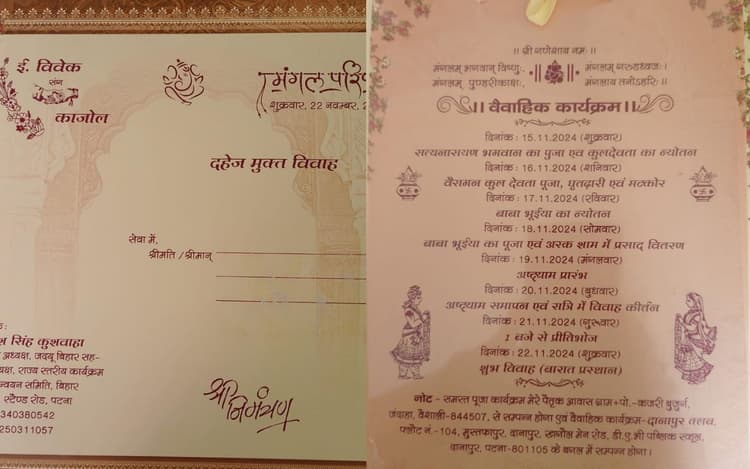 ई. विवेक
संग
काजोल
मंगल परि
शुक्रवार, 22 नवम्बर, 2
दहेज मुक्त विवाह
सेवा में,
श्रीमति / श्रीमान्
सिंह कुशवाहा
अध्यक्ष, जदयू बिहार सह-
राज्य स्तरीय कार्यक्रम
समिति, बिहार
स्टैण्ड रोड, पटना
340380542
250311057
श्री
निमंत्रण
।। श्री गणेशाय नमः ।।
मंगलम् भगवान् विष्णुः, मंगलम् गरुडध्वजः।
मंगलम् पुण्डरीकाक्षः, मंगलाय तनोऽहरिः ।।
।। वैवाहिक कार्यक्रम ।।
दिनांक : 15.11.2024 (शुक्रवार)
सत्यनारायण भगवान का पुजा एव कुलदेवता का न्योतन
दिनांक : 16.11.2024 (शनिवार)
वैरागन कुल देवता पूजा, घृतढ़ारी एवं मटकोर
दिनांक : 17.11.2024 (रविवार)
बाबा भूईया का न्योतन
दिनांक : 18.11.2024 (सोमवार)
बाबा भूईया का पूजा एवं अरक शाम में प्रसाद वितरण
दिनांक : 19.11.2024 (मंगलवार)
अष्ट्याम प्रारंभ
दिनांक : 20.11.2024 (बुधवार)
अष्ट्याम समापन एवं रात्रि में विवाह कीर्तन
दिनांक : 21.11.2024 (गुरूवार)
1 बजे से प्रीतिभोज
दिनांक : 22.11.2024 (शुक्रवार)
शुभ विवाह (बारात प्रस्थान)
नोट - समस्त पूजा कार्यक्रम मेरे पैतृक आवास ग्राम+पो.- कजरी बुजुर्ग,
जंदाहा, वैशाली-844507, से सम्पन्न होगा एवं वैवाहिक कार्यक्रम-दानापुर तलाव,
फ्लॉट नं.-104, मुस्तफापुर, दानापुर, खगौल मेन रोड, डी.ए.भी पब्लिक स्कूल,
दानापुर, पटना-801105 के बगल में सम्पन्न होगा।